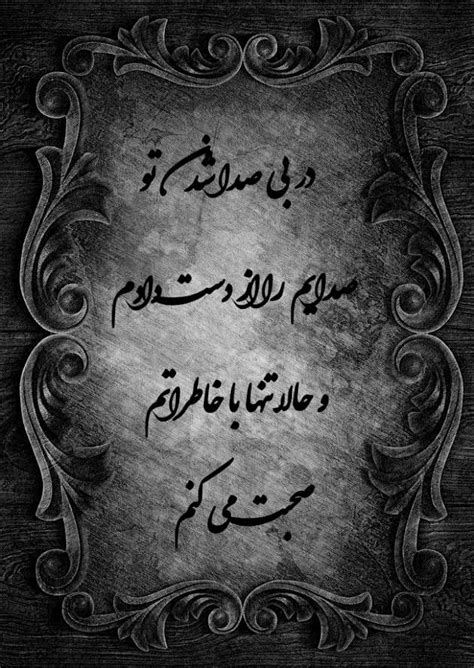 در بی صدا شدن تو
صدایم را از دست دادم
و حالا تنها با خاطراتم
صحبت می کنم